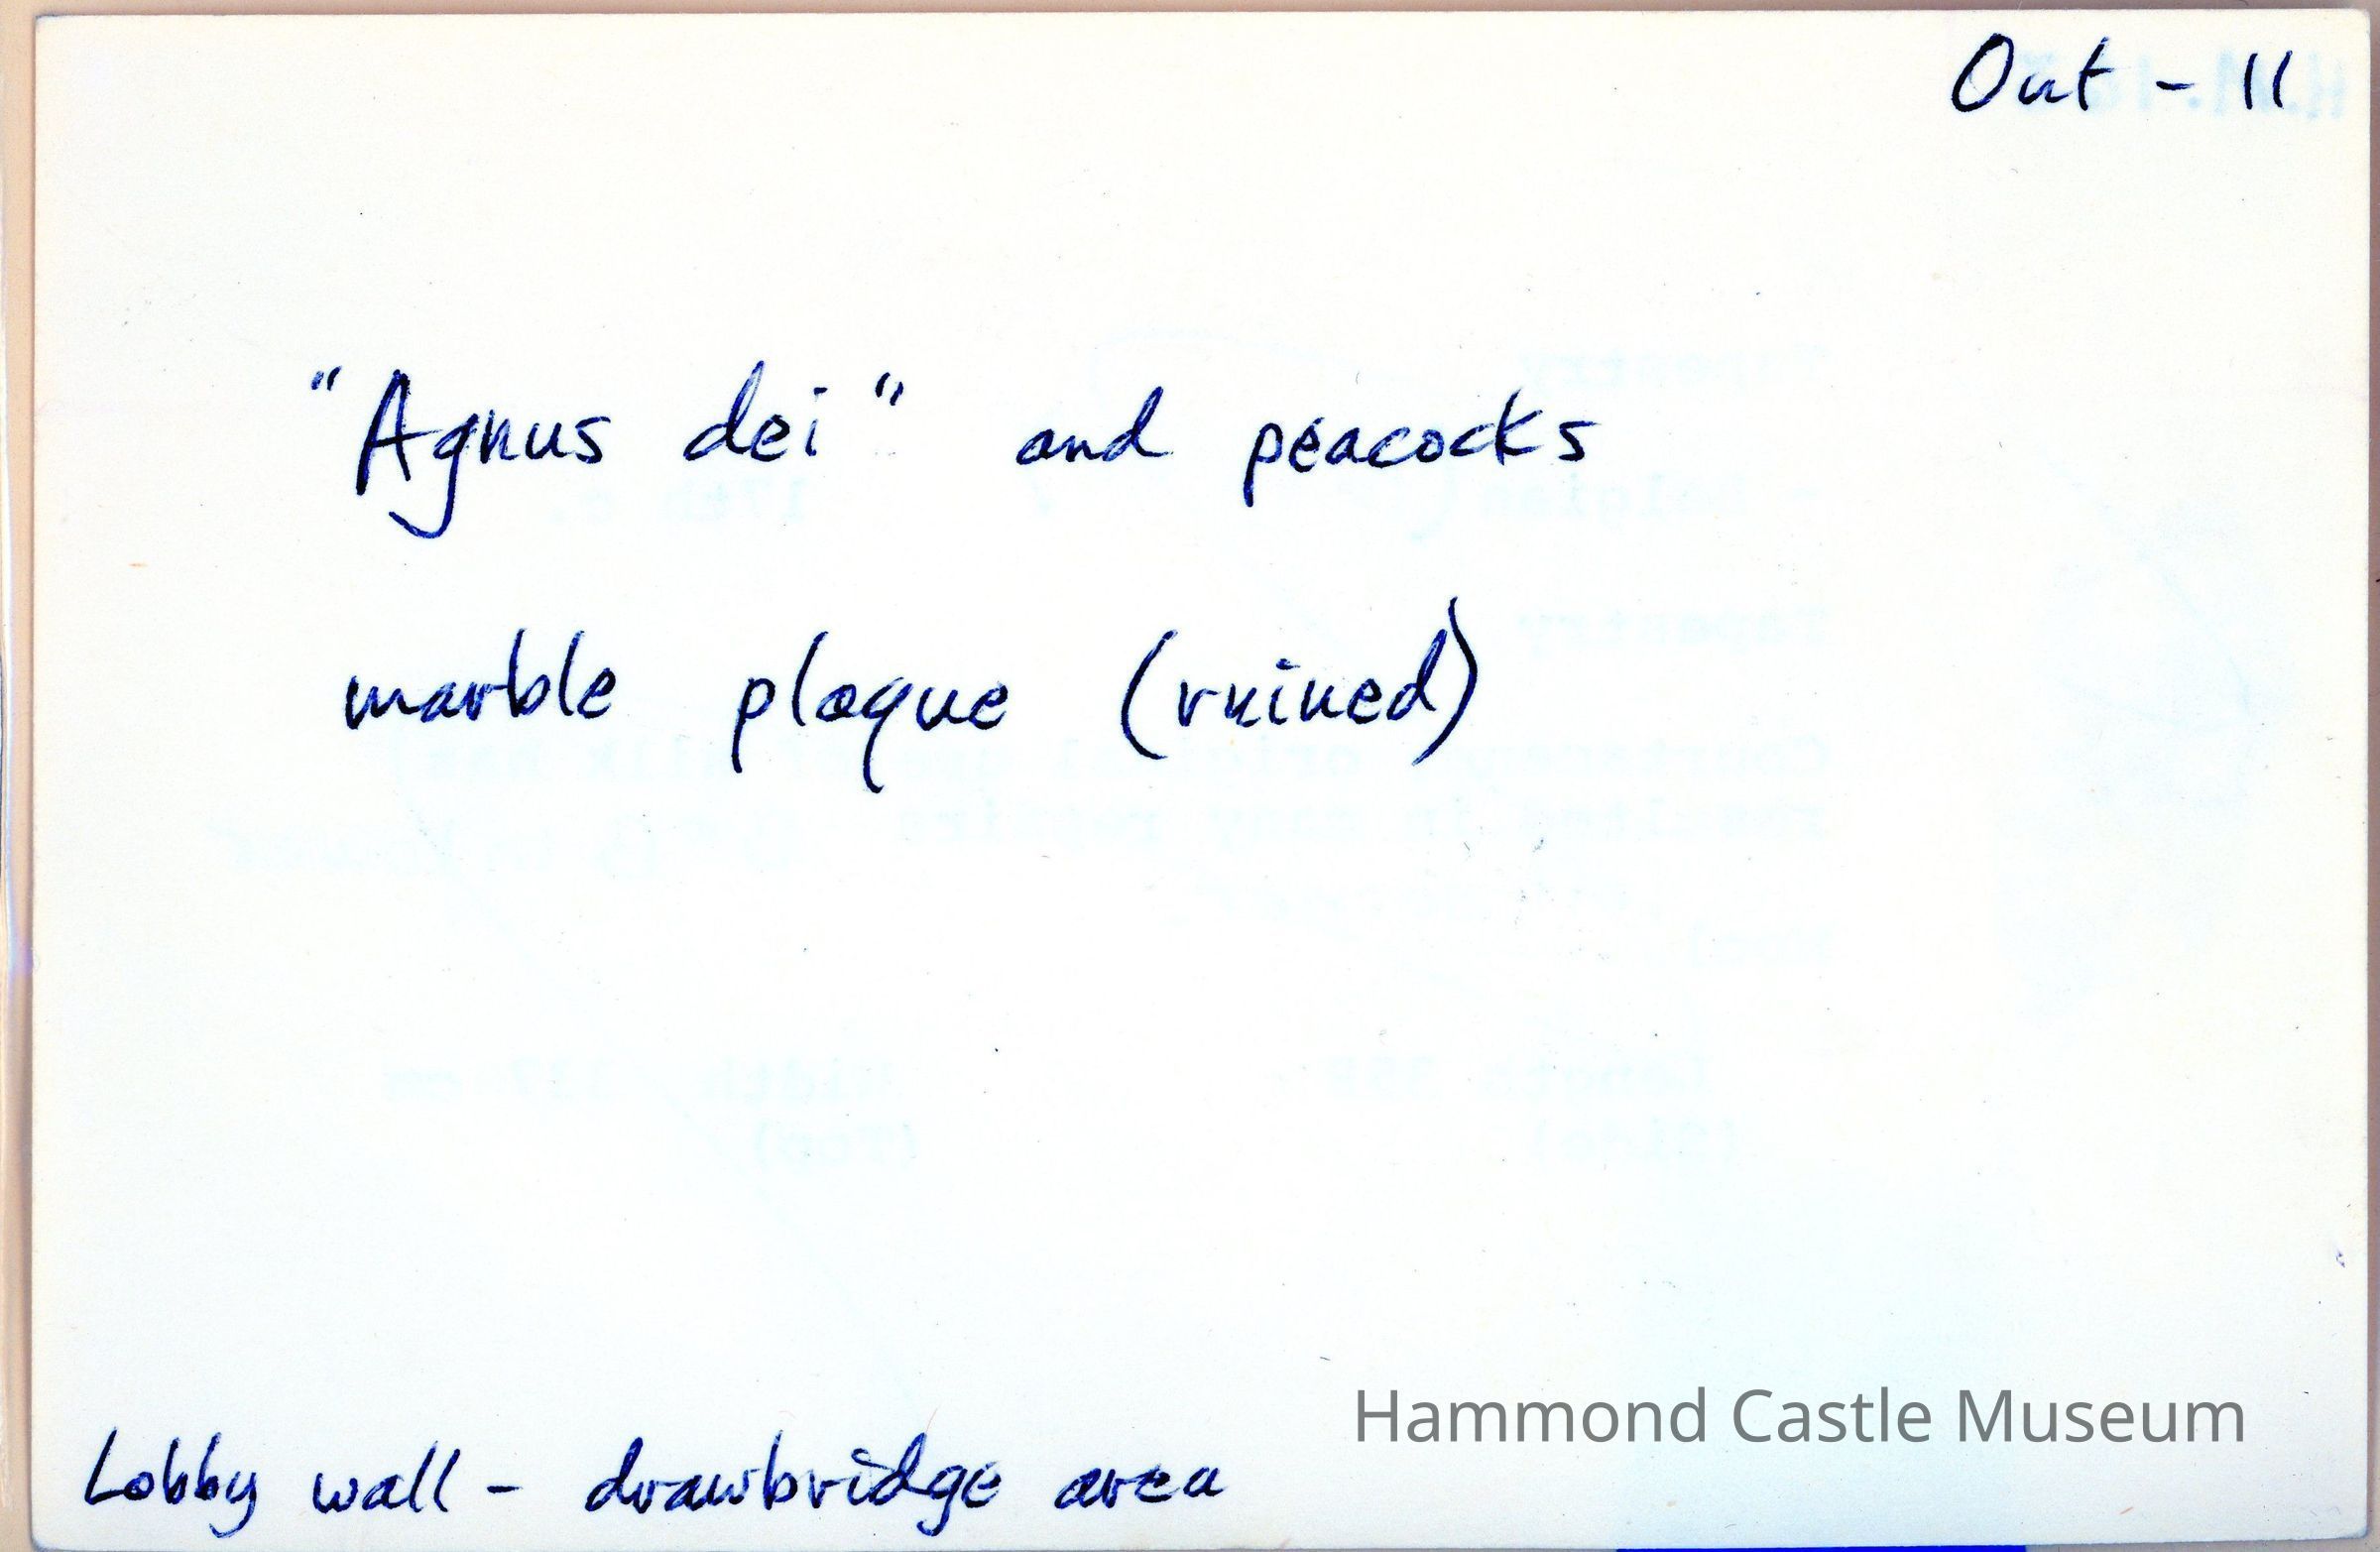 Out - 11
"Agnus dei" and peacocks
marble plaque (ruined)
Hammond Castle Museum
Lobby wall - drawbridge area